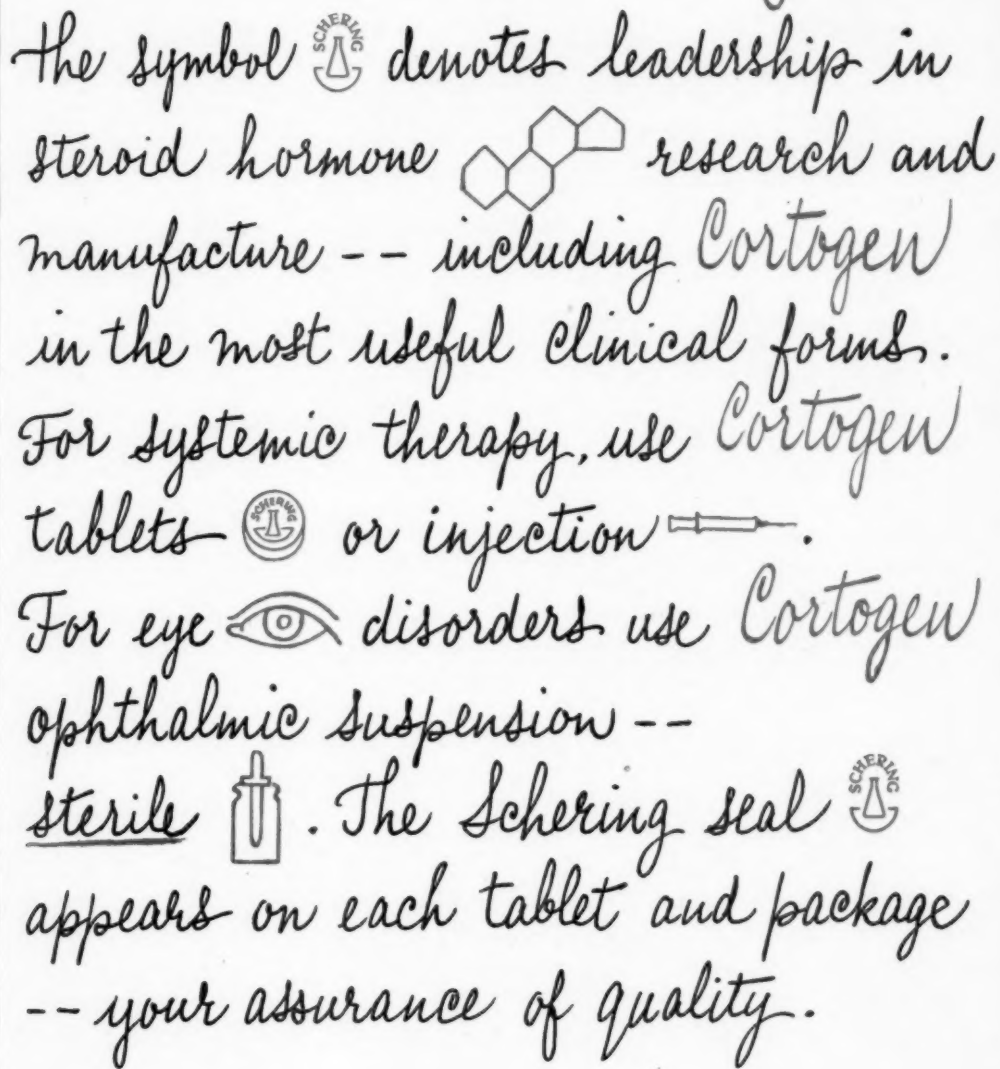 the symbol SCHERING denotes leadership in
steroid hormone research and
manufacture -- including Cortogen
in the most useful clinical forms.
For systemic therapy, use Cortogen
tablets SCHERING or injection .
For eye disorders use Cortogen
ophthalmic suspension --
sterile . The Schering seal SCHERING
appears on each tablet and package
-- your assurance of quality.